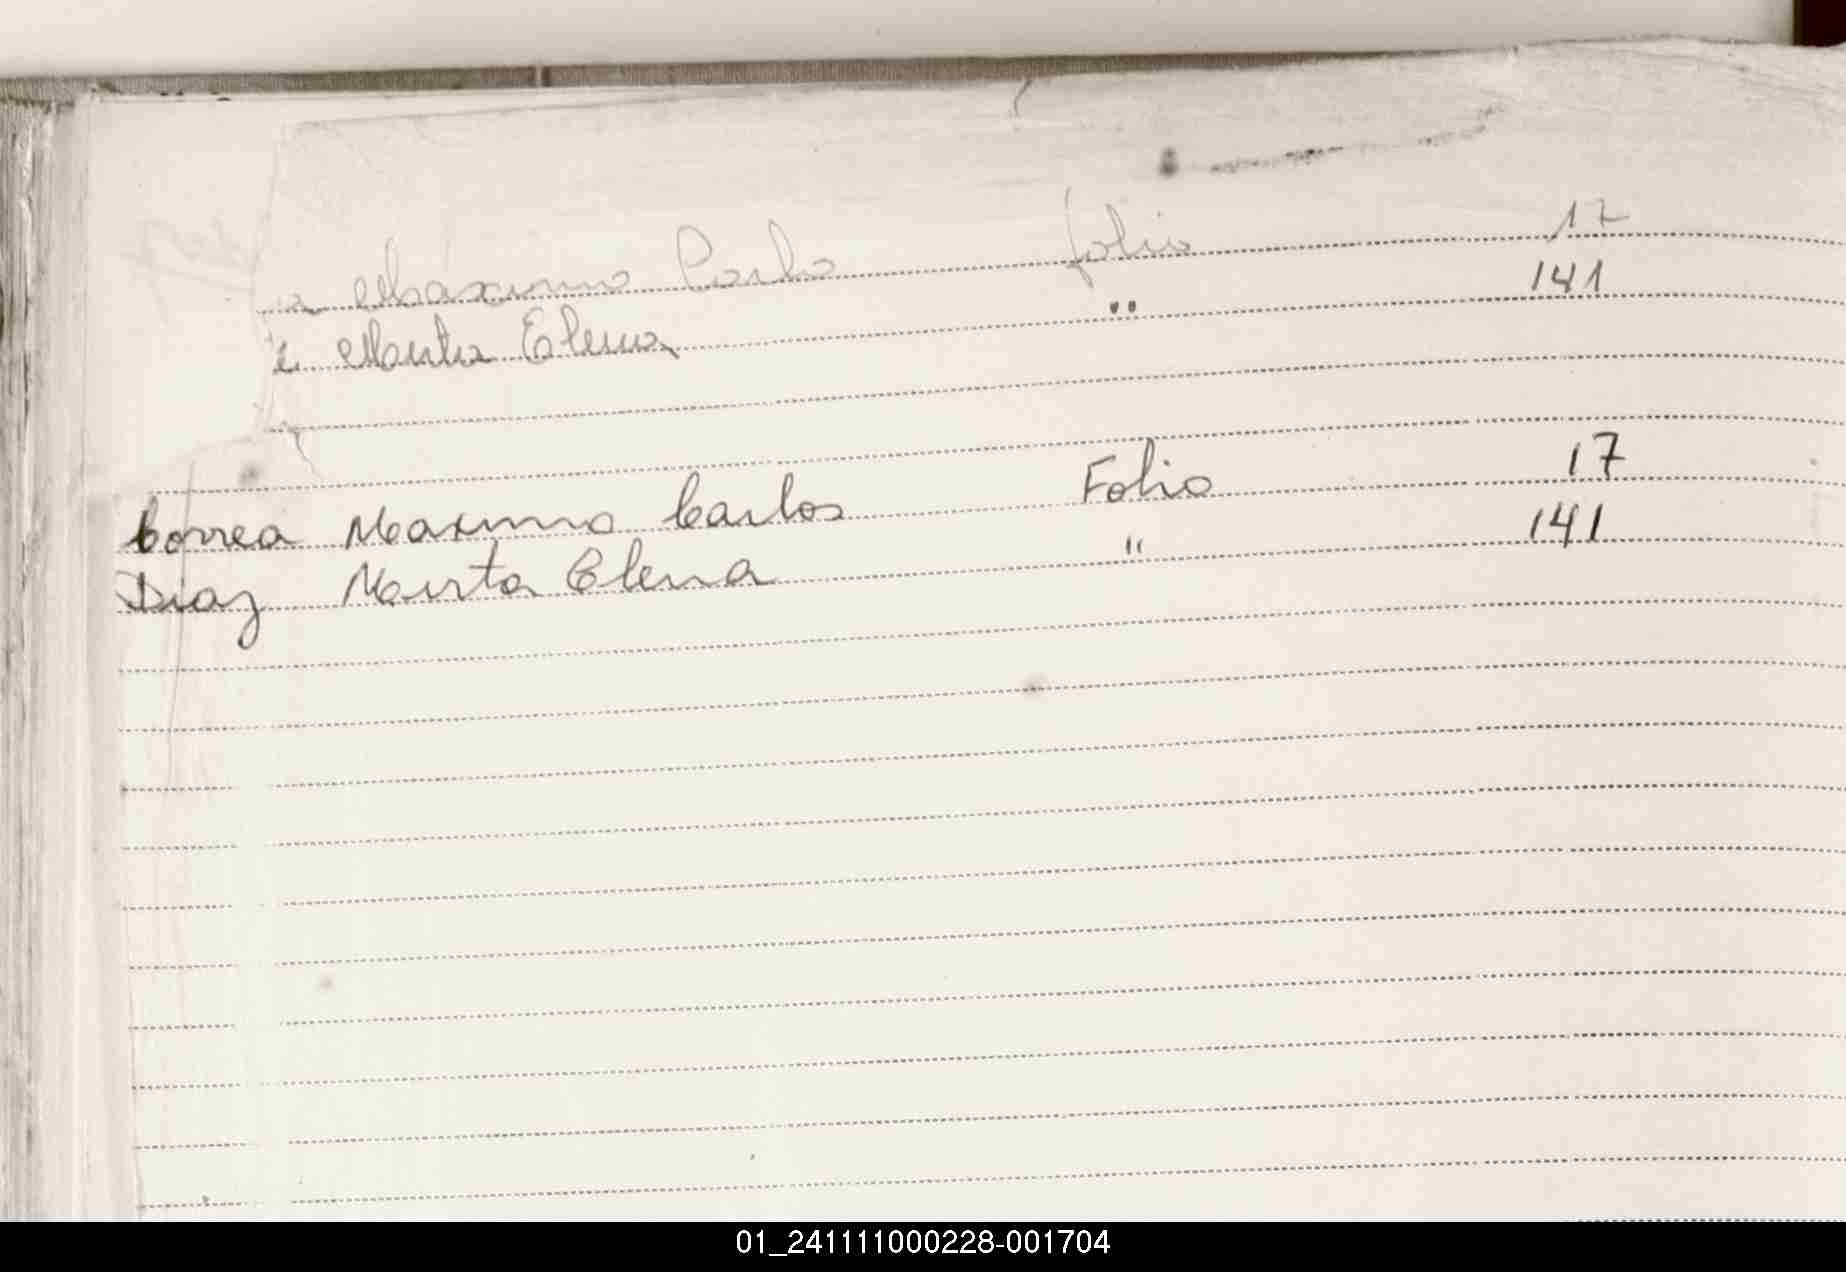 a Maximo Carlo folio 17
Mirta Elena " 141
Correa Maximo Carlos Folio 17
Diaz Mirta Elena " 141
01_241111000228-001704